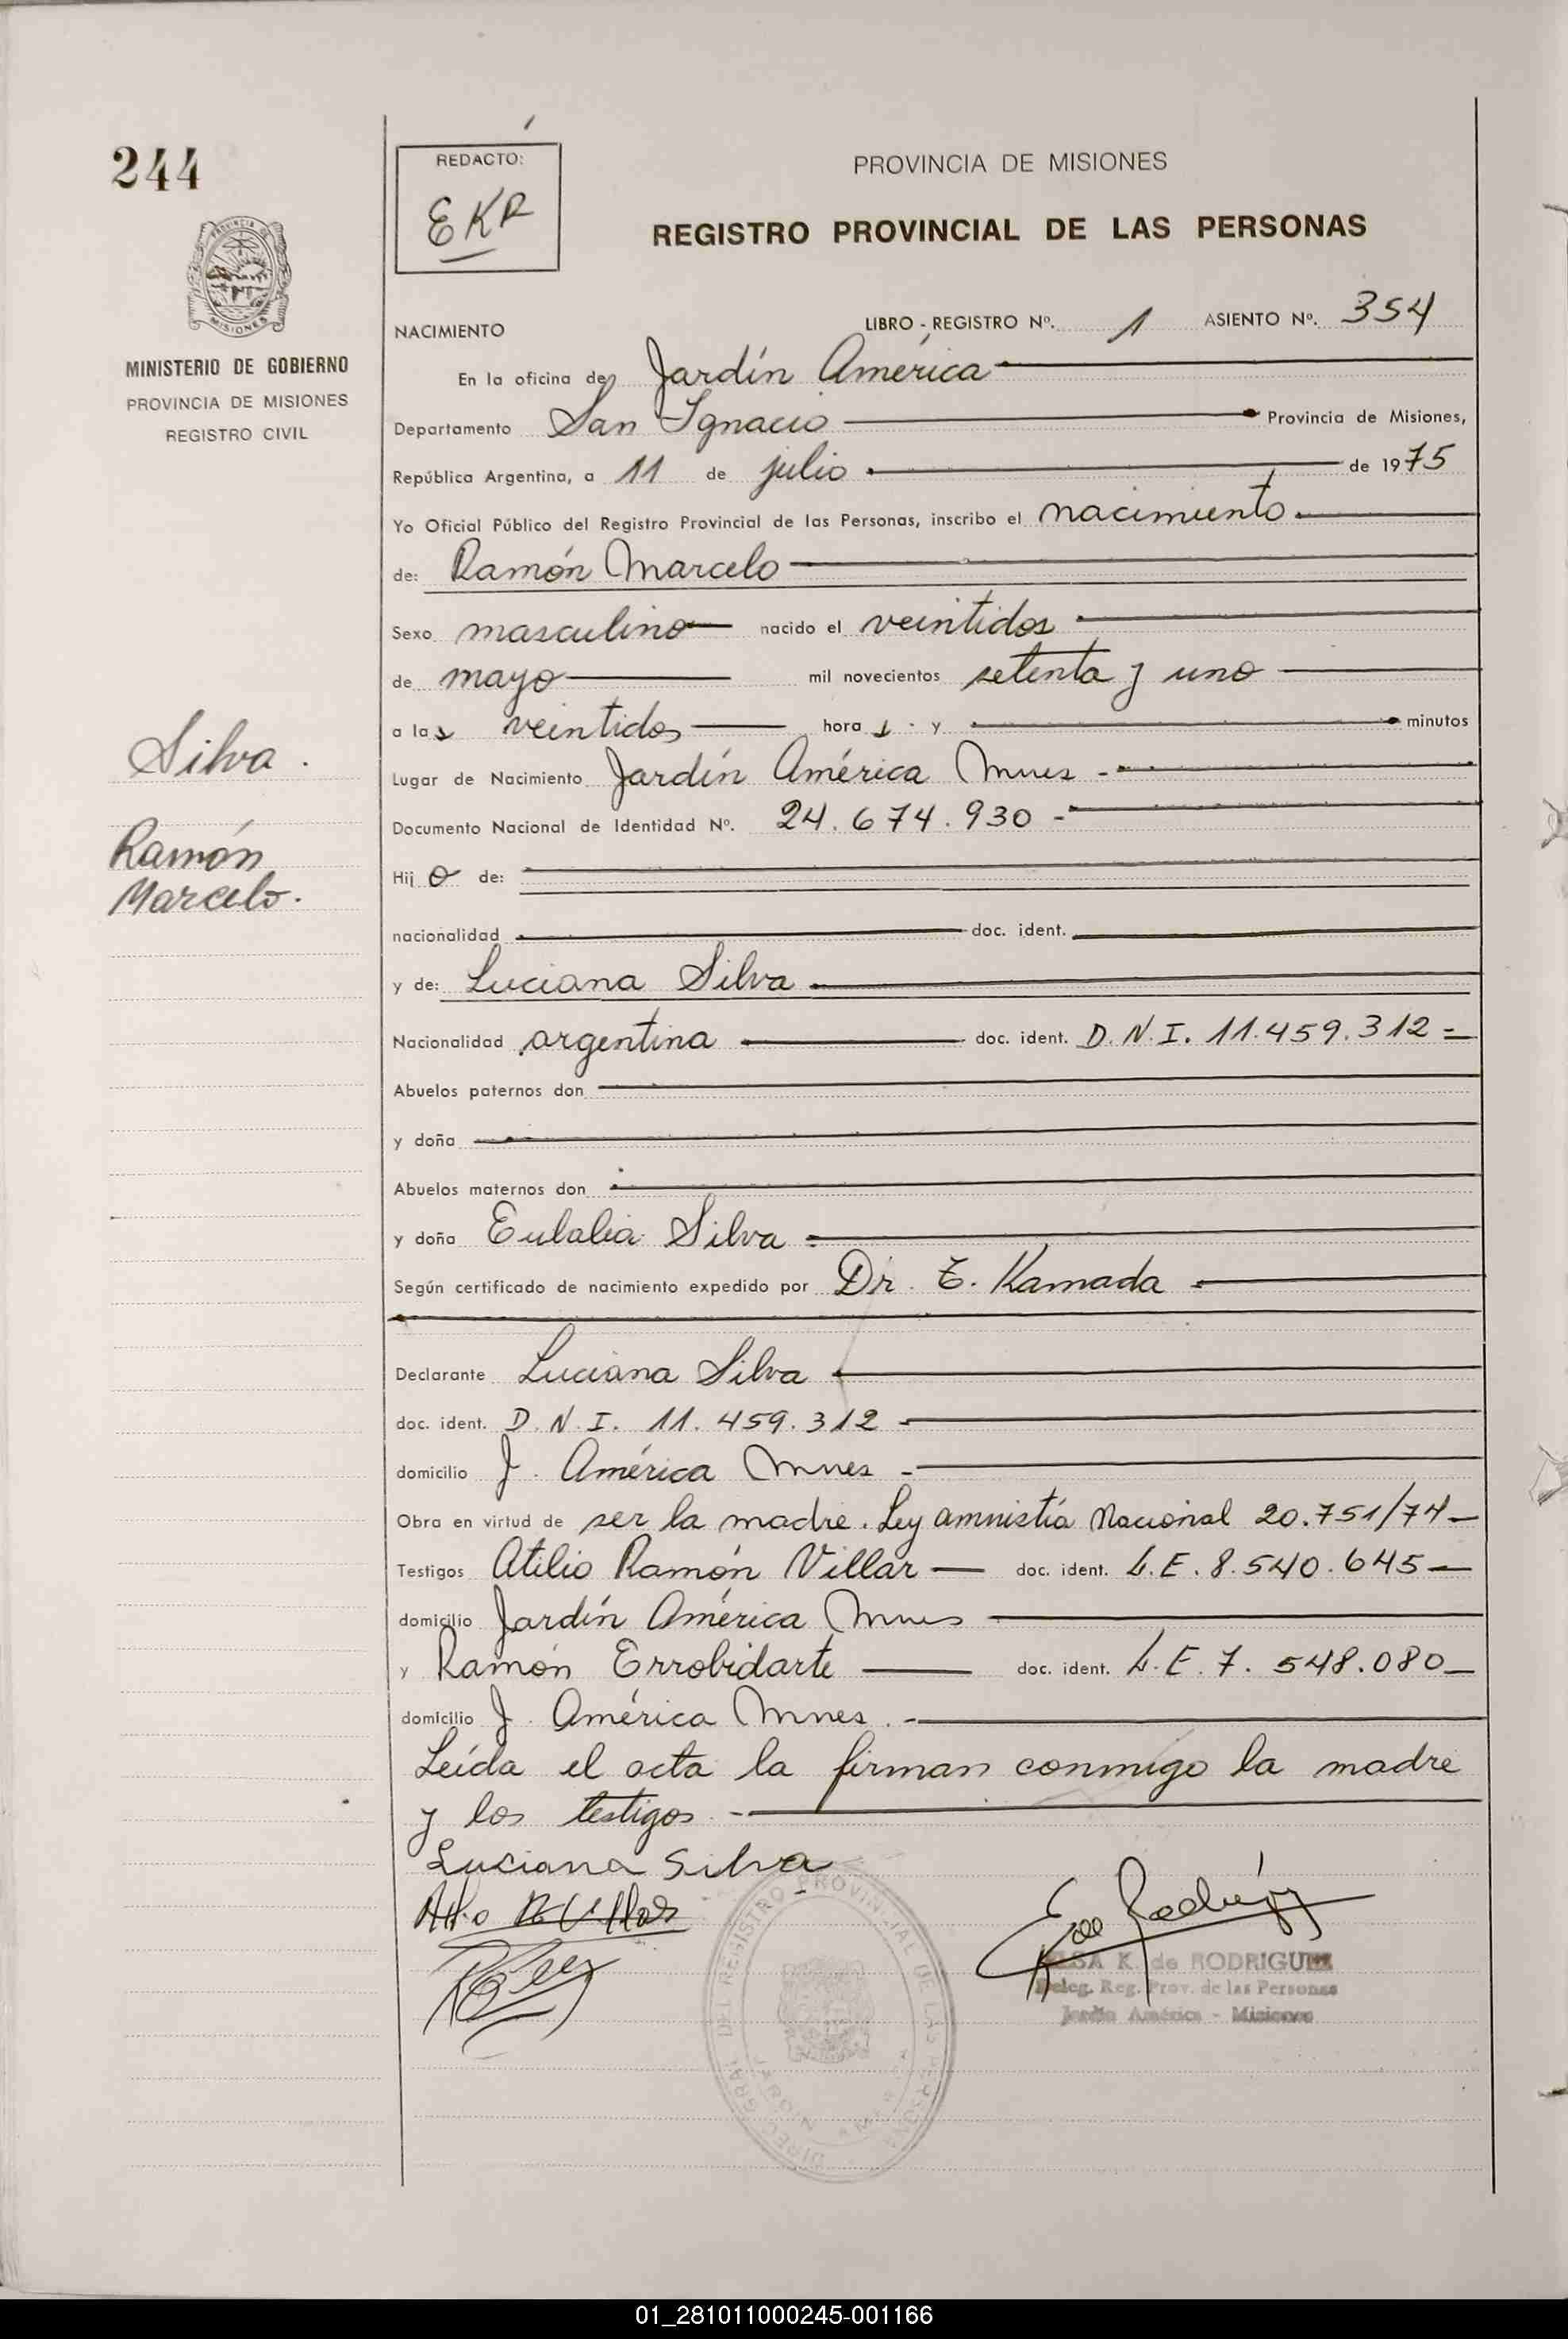 244
REDACTO:
EKR
PROVINCIA DE MISIONES
REGISTRO PROVINCIAL DE LAS PERSONAS
MISIONES
MINISTERIO DE GOBIERNO
PROVINCIA DE MISIONES
REGISTRO CIVIL
NACIMIENTO LIBRO - REGISTRO Nº. 1 ASIENTO Nº. 354
En la oficina de Jardín América
Departamento San Ignacio Provincia de Misiones,
República Argentina, a 11 de julio de 1975
Yo Oficial Público del Registro Provincial de las Personas, inscribo el nacimiento
de: Ramón Marcelo
Sexo masculino nacido el veintidos
de mayo mil novecientos setenta y uno
a las veintidos horas y minutos
Silva.
Ramón
Marcelo.
Lugar de Nacimiento Jardín América Mnes -
Documento Nacional de Identidad Nº. 24.674.930 -
Hijo de:
nacionalidad doc. ident.
y de: Luciana Silva
Nacionalidad argentina doc. ident. D.N.I. 11.459.312 =
Abuelos paternos don
y doña
Abuelos maternos don
y doña Eulalia Silva
Según certificado de nacimiento expedido por Dr. E. Kamada
Declarante Luciana Silva
doc. ident. D.N.I. 11.459.312
domicilio J. América Mnes -
Obra en virtud de ser la madre. Ley amnistía Nacional 20.751/74
Testigos Atilio Ramón Villar doc. ident. L.E. 8.540.645
domicilio Jardín América Mnes
y Ramón Errobidarte doc. ident. L.E. 7.548.080
domicilio J. América Mnes. -
Leída el acta la firman conmigo la madre
y los testigos. -
Luciana Silva
ELSA K. de RODRIGUEZ
Deleg. Reg. Prov. de las Personas
Jardín América - Misiones
01_281011000245-001166